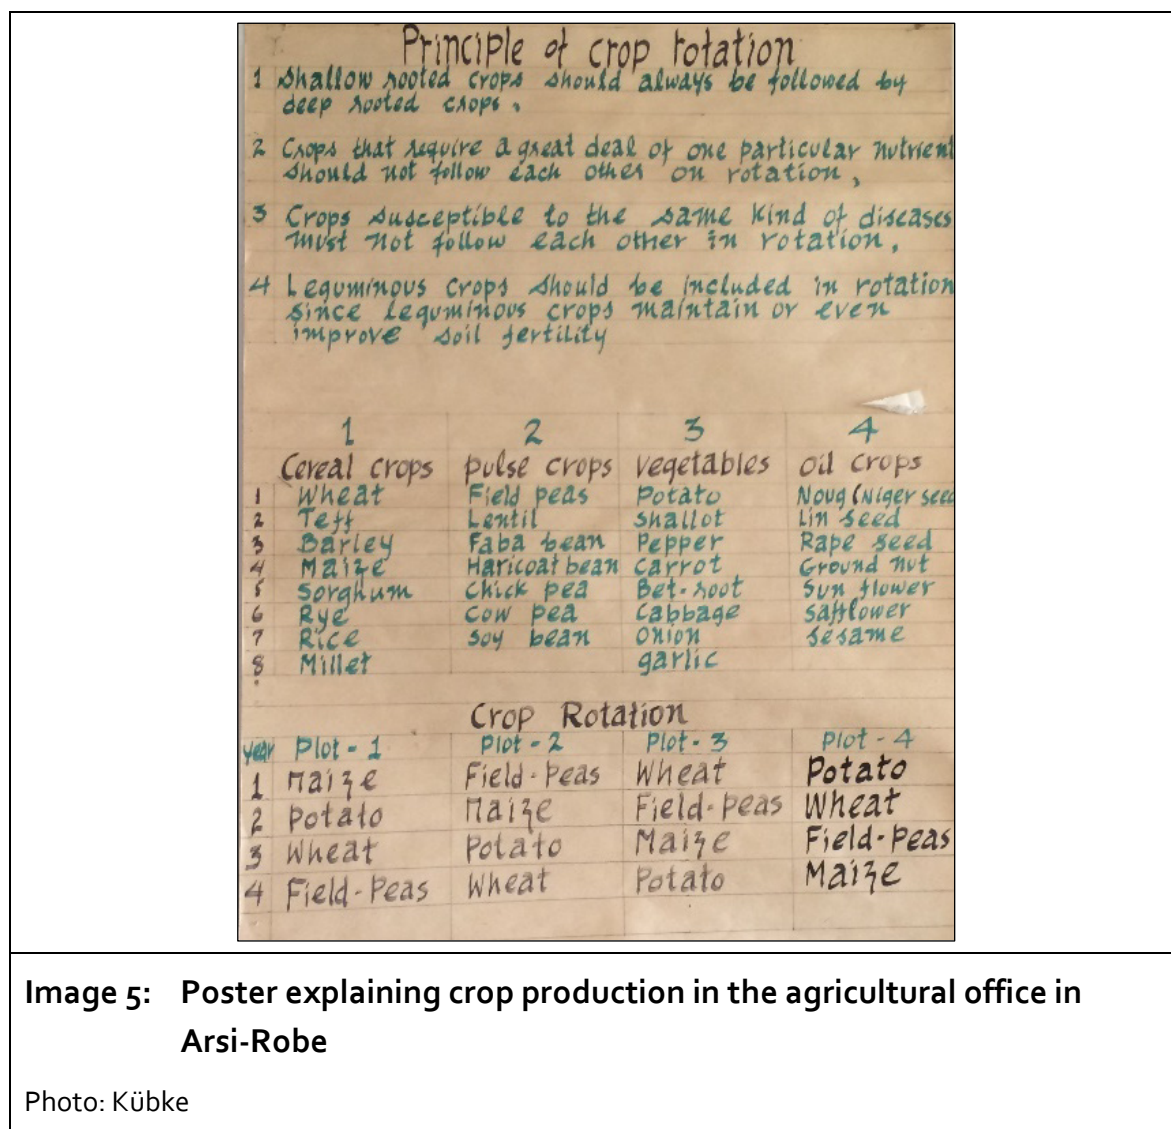 Principle of crop rotation
1 Shallow rooted crops should always be followed by
deep rooted crops.
2 Crops that require a great deal of one particular nutrient
should not follow each other on rotation,
3 Crops susceptible to the same kind of diseases
must not follow each other in rotation.
4 Leguminous crops should be included in rotation
since leguminous crops maintain or even
improve soil fertility
1 2 3 4
Cereal crops pulse crops vegetables oil crops
1 Wheat Field peas Potato Noug (Niger seed
2 Teff Lentil Shallot Lin seed
3 Barley Faba bean Pepper Rape seed
4 Maize Haricoat bean Carrot Ground nut
5 Sorghum Chick pea Bet-root Sun flower
6 Rye Cow pea Cabbage safflower
7 Rice Soy bean Onion sesame
8 Millet garlic
Crop Rotation
year Plot - 1 Plot - 2 Plot - 3 Plot - 4
1 Maize Field-Peas Wheat Potato
2 Potato Maize Field-Peas Wheat
3 Wheat Potato Maize Field-Peas
4 Field-Peas Wheat Potato Maize
Image 5: Poster explaining crop production in the agricultural office in
Arsi-Robe
Photo: Kübke